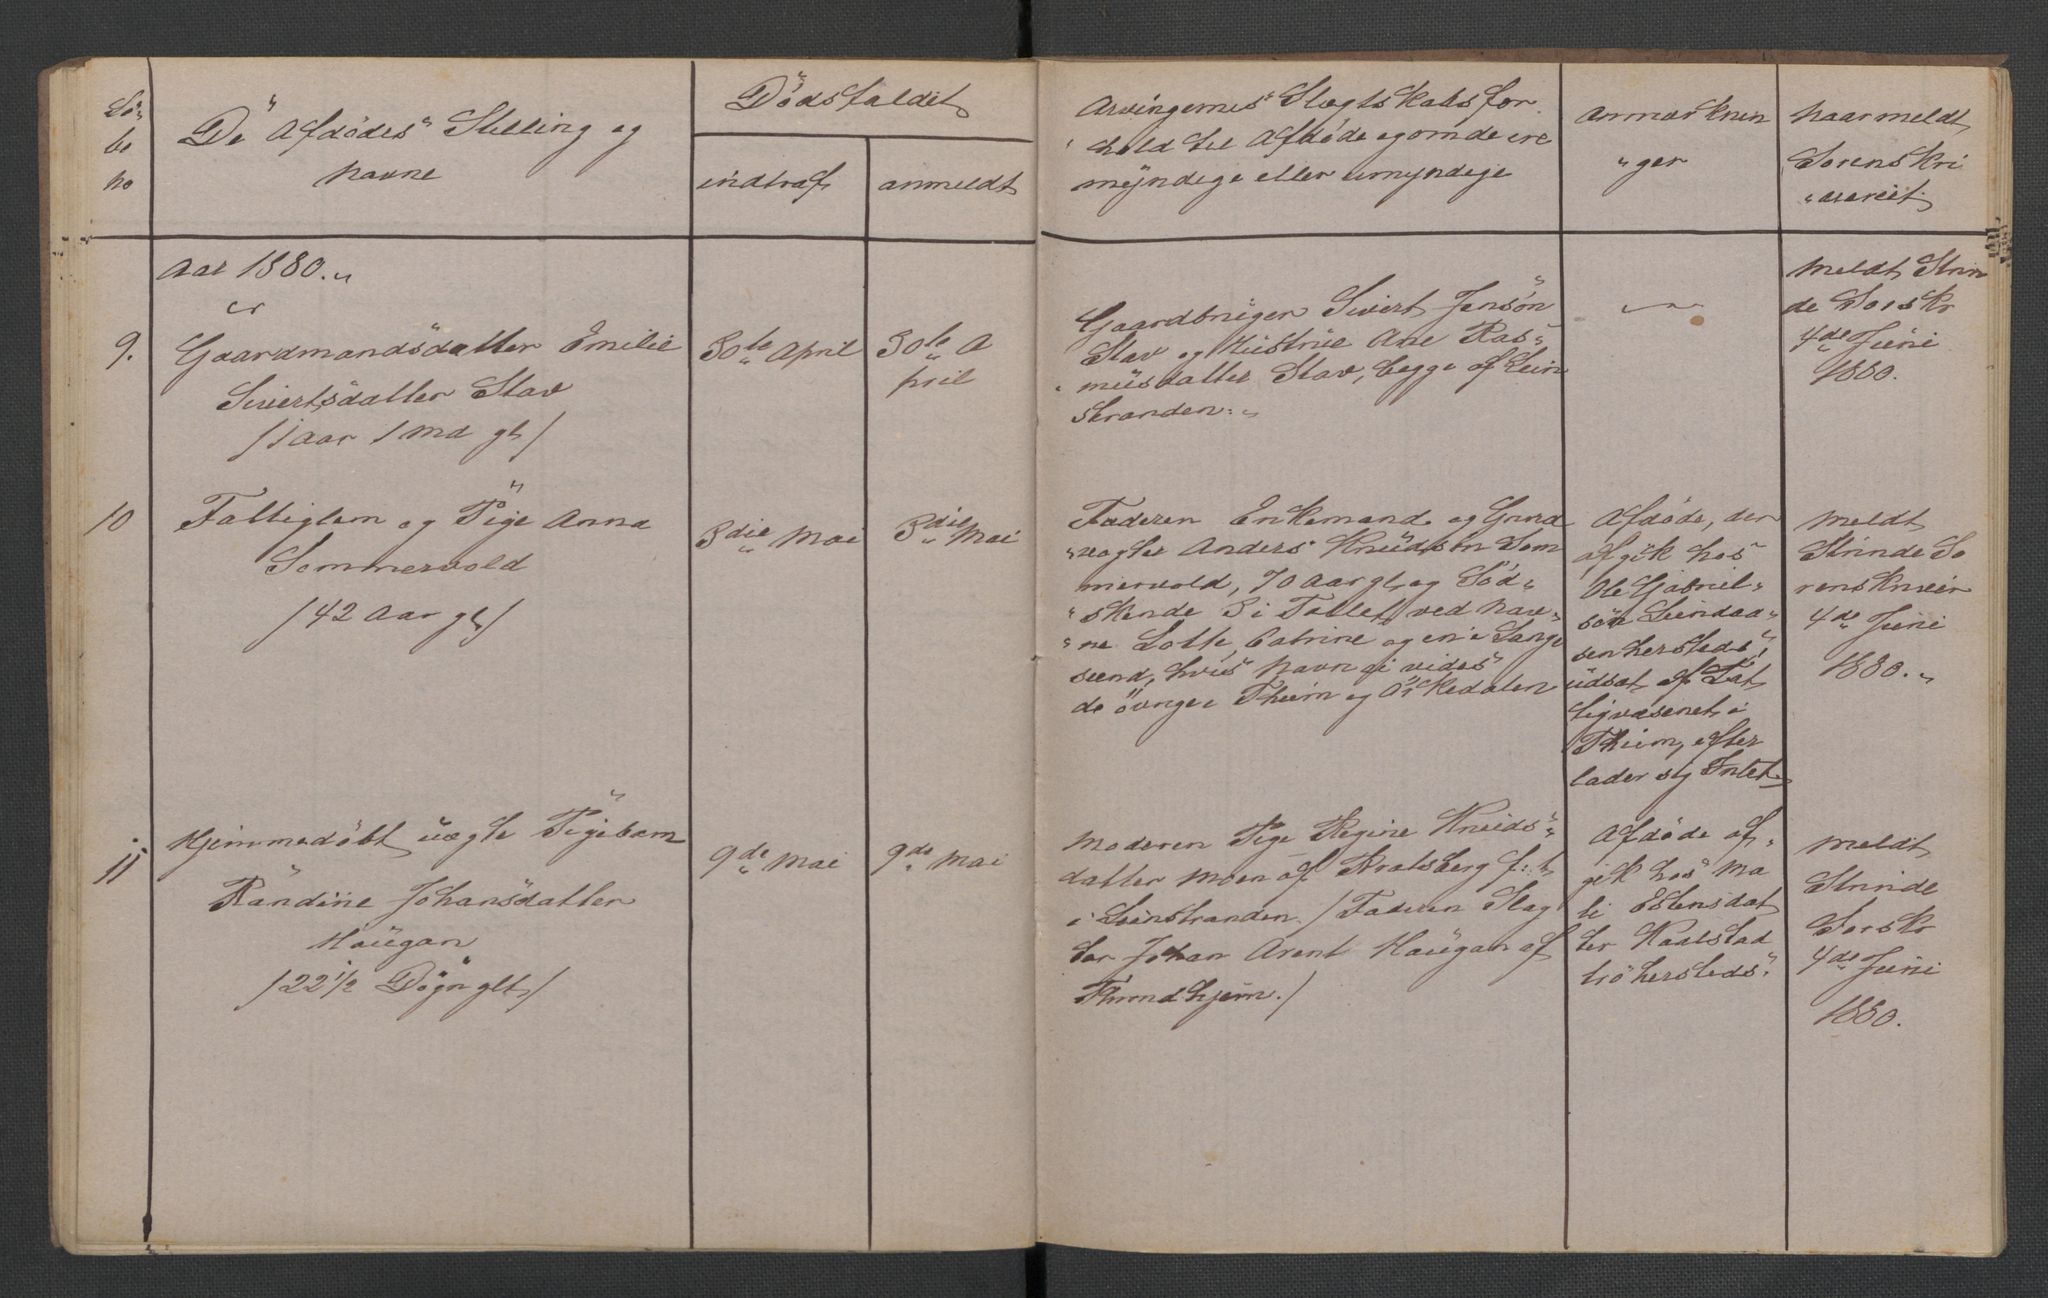 Lö-
be
no
De Afdödes Stilling og
navne
Dödsfaldet
indtraf
anmeldt
Arvingernes Slægtskabsfor
hold til Afdöde og om de ere
myndige eller umyndige
Anmærknin
"ger
naar meldt
Sorenskri
veriet
Aar 1880.
9.
Gaardmandsdatter Emilie
Sivertsdatter Stav
/1 Aar 1 Md gl/
30te April
30te A
pril
Gaardbruger Sivert Jensön
Stav og Hustrue Ane Ras-
musdatter Stav, begge af Lein
stranden.
Meldt Strin
de Sorskr
4de Juni
1880.
10
Fattiglem og Pige Anna
Sommervold
/42 Aar gl/
3die Mai
3die Mai
Faderen Enkemand og Grind
vogter Anders Knudsön Som
mervold, 70 Aar gl, og Söd-
skende 3 i Tallet ved Nav-
ne Lotte, Catrine og en i Lange
sund, hvis Navn ei vides
de övrige i Thiem og Örkedalen
Afdöde, der
afgik hos
Ole Gabriel-
sön
hersteds,
udsat af Fat
tigvæsenet i
Thiem, efter
lader sig Intet
Meldt
Strinde So
renskriver
4de Juni
1880.
11
Hjemmedöbt uægte Pigebarn
Randine Johansdatter
Haugan
/22 1/2 Dögn glt/
9de Mai
9de Mai
Moderen Pige Regine Knuds-
datter Moen af Kratsberg f:t
i Leinstranden /Faderen Slag
ter Johan Arent Haugan af
Throndhjem./
Afdöde af-
gik hos Ma
li Estensdat
ter Kaalstad
trö hersteds.
Meldt
Strinde
Sorskr
4de Juni
1880.